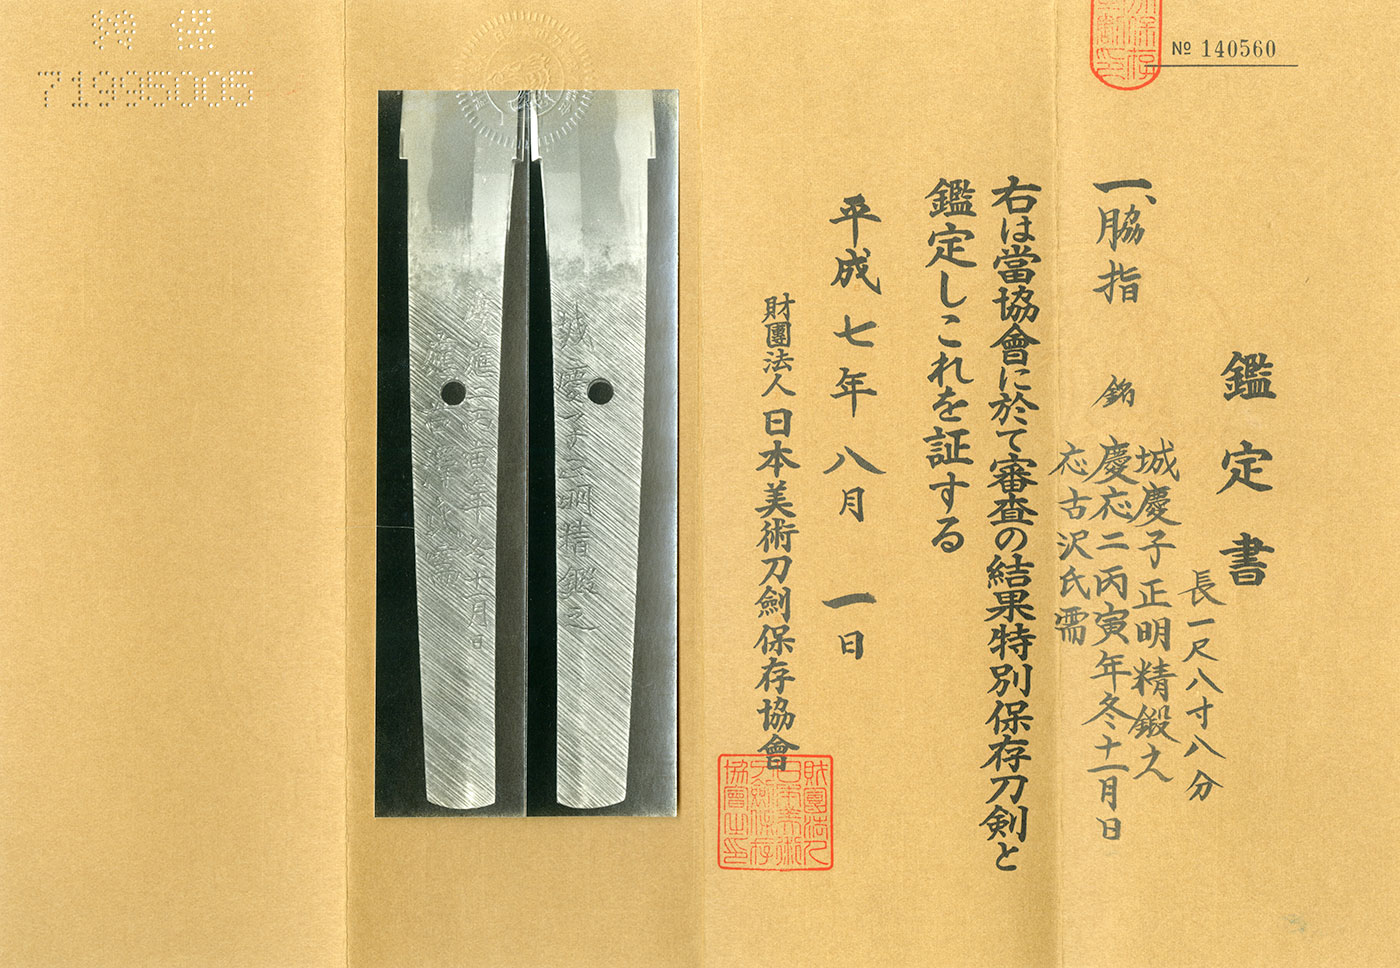 No 140560
鑑定書
一、脇指
長一尺八寸八分
銘
城慶子正明精鍛之
慶応二丙寅年冬十一月日
応古沢氏需
右は當協會に於て審査の結果特別保存刀剣と
鑑定しこれを証する
平成七年八月一日
財團法人日本美術刀劍保存協會
財團法人日本美術刀劍保存協會之印
城慶子正明精鍛之
慶應二丙寅年冬十一月日
應古澤氏需
特保
71995005